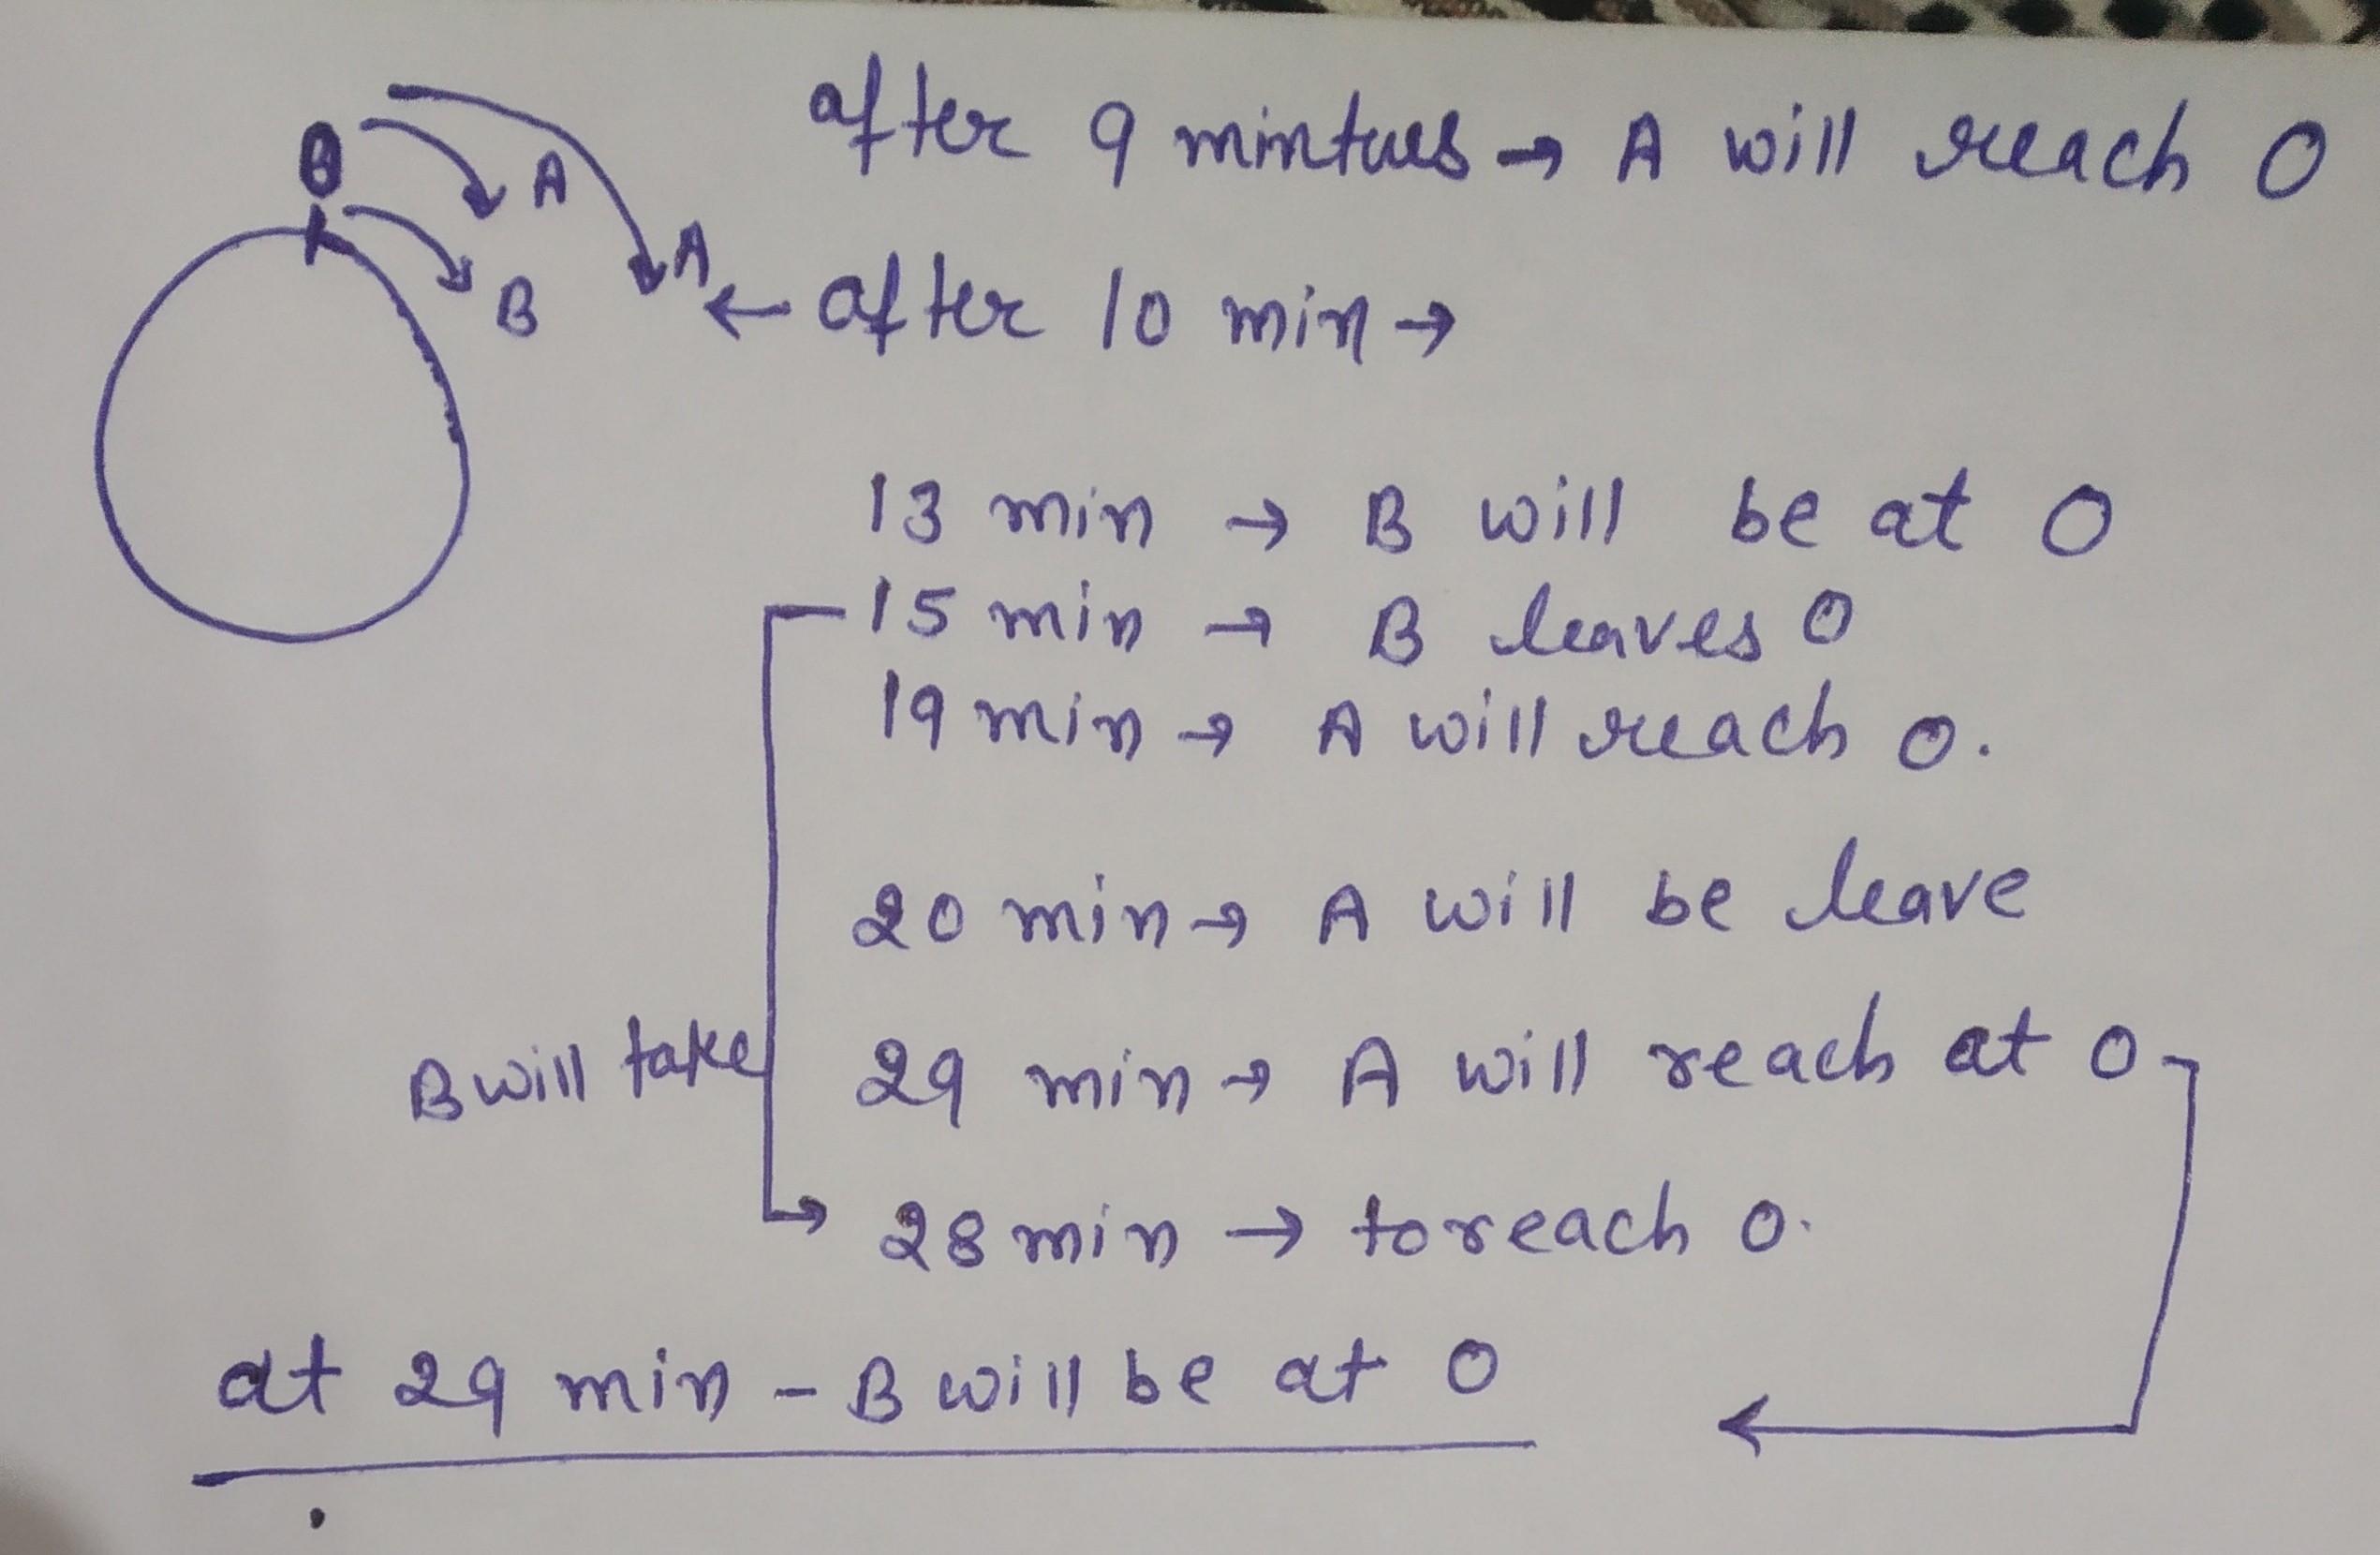 after 9 mintues → A will reach 0
0
A
A
B
← after 10 min →
13 min → B will be at 0
15 min → B leaves 0
19 min → A will reach 0.
20 min → A will be leave
B will take
29 min → A will reach at 0
28 min → to reach 0.
at 29 min - B will be at 0